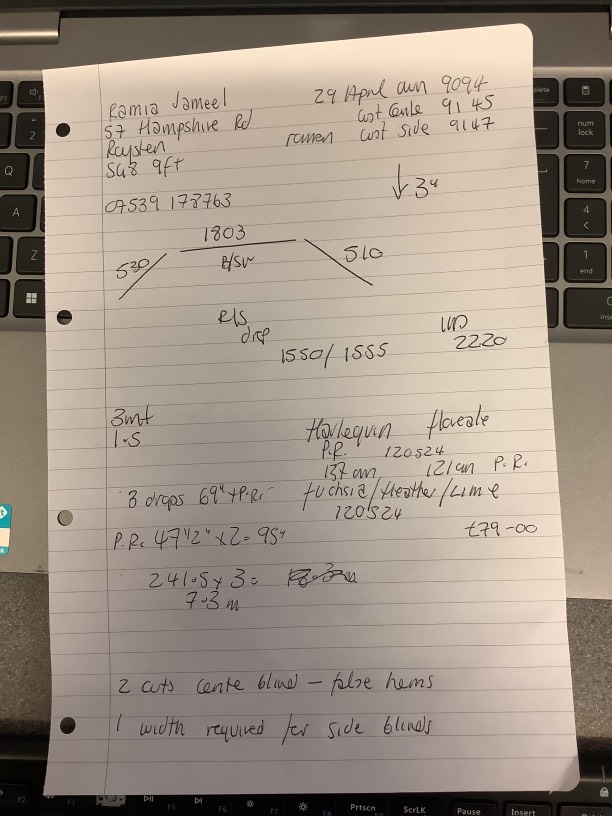 Ramia Jameel
57 Hampshire Rd
Roysten
SG8 9ft
07539 178763
29 April am 9094
cost Cente 9145
ramen cost side 9147
↓ 3"
1803
530 B/SW 510
R/S
drop
1550/1555
UD
2220
3mt
1.5
Harlequin floreale
P.R. 120524
137 cm 121cm P.R.
3 drops 69" + P.R.
fuchsia/Heather/Lime
120524
£79-00
P.R. 47 1/2" x 2 = 95"
241.5 x 3 =
7.3 m
2 cuts cente blind - false hems
1 width required for side blinds
2
Q
A
Z
num
lock
7
home
4
1
end
F2
F5
F6
Prtscn
ScrLK
Pause
Insert